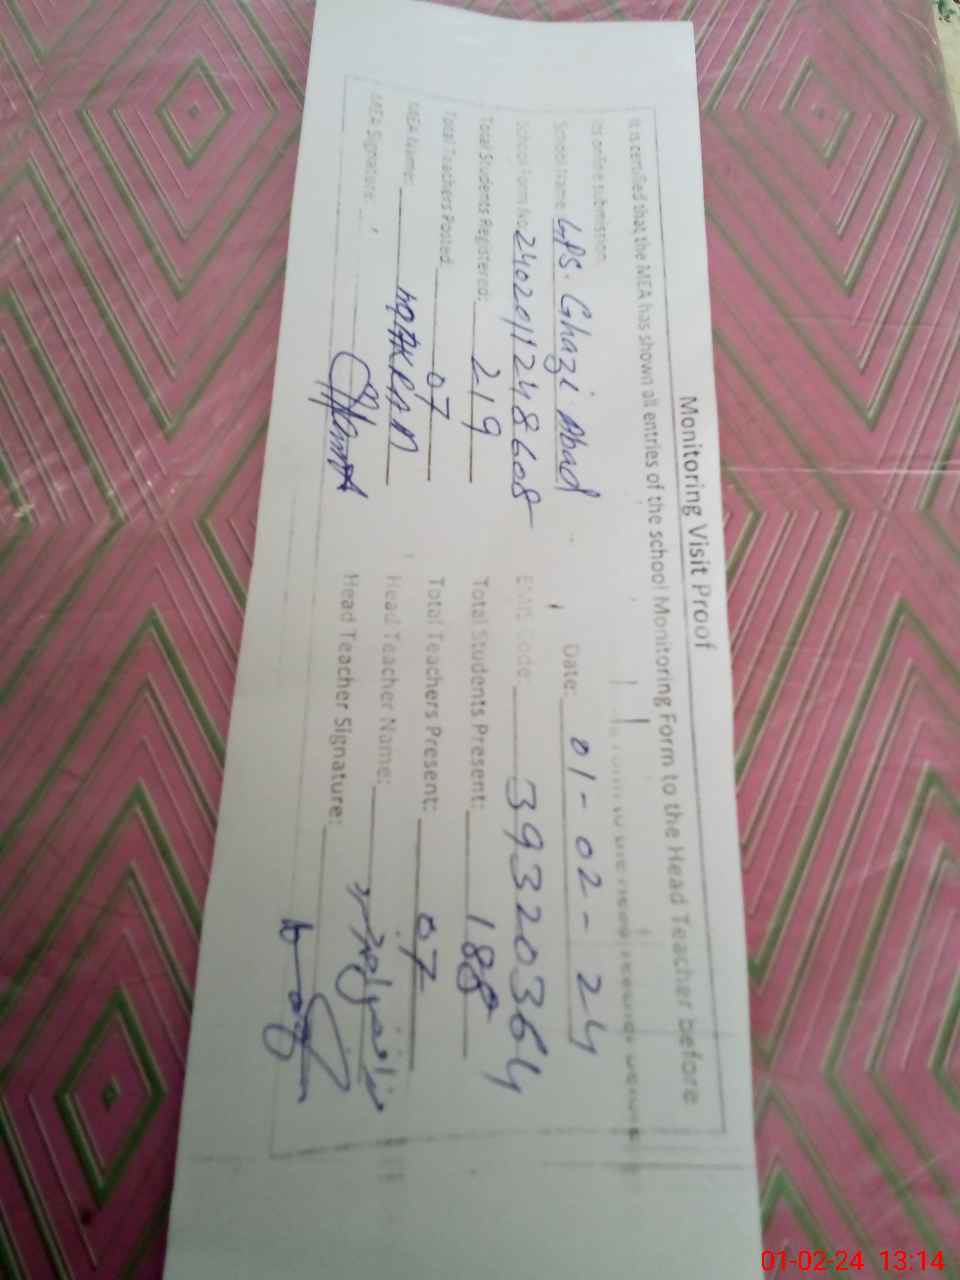 Monitoring Visit Proof
It is certified that the MEA has shown all entries of the school Monitoring Form to the Head Teacher before
its online submission.
School Name: GPS. Ghazi Abad Date: 01-02-24
School Form No: 2402011248608 EMIS Code: 39320364
Total Students Registered: 219 Total Students Present: 188
Total Teachers Posted: 07 Total Teachers Present: 07
MEA Name: Head Teacher Name:
MEA Signature: Head Teacher Signature:
01-02-24 13:14